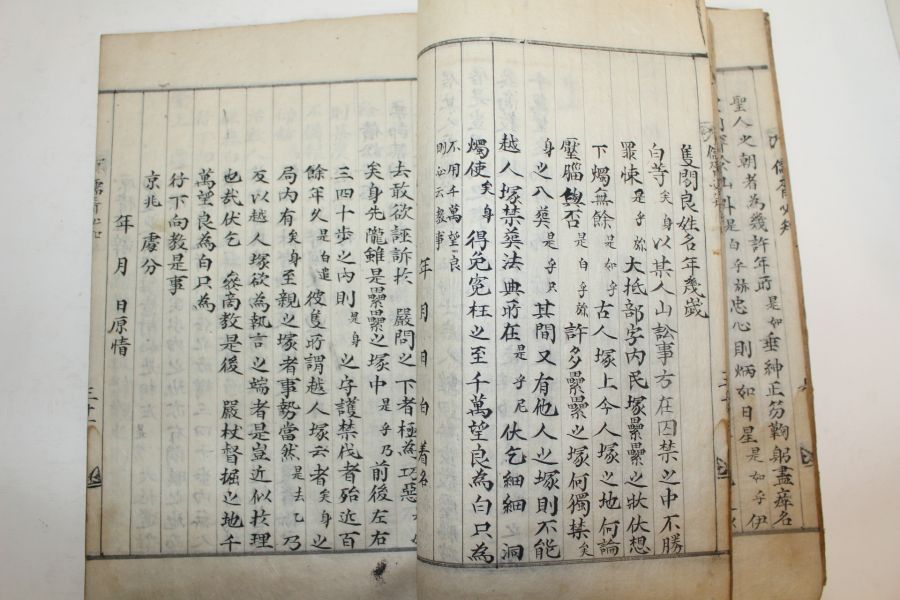 儒胥必知
聖人之朝者為幾許年所是如垂紳正笏鞠躬盡瘁名
山外是白乎旀忠心則炳如日星是如乎伊
隻閑良姓名年幾歲
白等矣身以某人山訟事方在囚禁之中不勝
罪悚是乎旀大抵部字內民塚纍纍之狀伏想
下燭無餘是如乎古人塚上今人塚之地何論
壓腦與否是白乎旀許多纍纍之塚何獨禁矣
身之入葬是乎只其間又有他人之塚則不能
越人塚禁葬法典所在是乎尼伏乞細細之洞
燭使矣身得免冤枉之至千萬望良為白只為
不用千萬望良
則必云敎事
年月日白着名
去敢欲誣訴於 嚴問之下者極為巧惡
矣身先隴雖是纍纍之塚中是乎乃前後左右
三四十步之內則是身之守護禁伐者殆近百
餘年久是白遣彼隻所謂越人塚云者矣身之
局內有矣身至親之塚者事勢當然是去乙乃
反以越人塚欲為執言之端者是豈近似於理
也哉伏乞 叅商敎是後 嚴杖督掘之地千
萬望良為白只為
行下向敎是事
京兆 處分
年 月 日原情